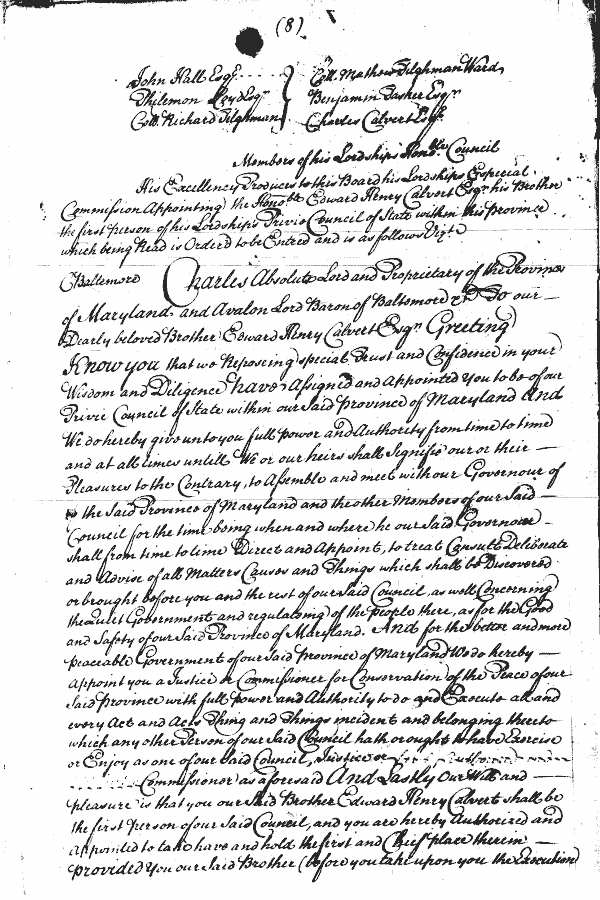 (8)
John Hall Esqr. } Coll. Mathew Tilghman Ward
Philemon Lloyd Esqr } Benjamin Tasker Esqr
Coll. Richard Tilghman } Charles Calvert Esqr.
Members of his Lordships Honoble Council
His Excellency Produces to this Board his Lordships Especial
Commission Appointing the Honoble Edward Henry Calvert Esqr. his Brother
the first person of his Lordships Privie Council of State within this Province
which being Read is Orderd to be Entred and is as follows Vizt
CBaltemore Charles Absolute Lord and Proprietary of the Province
of Maryland and Avalon Lord Baron of Baltemore &ca To our
Dearly beloved Brother Edward Henry Calvert Esqr. Greeting
Know you that we Reposing special Trust and Confidence in your
Wisdom and Diligence have Assigned and Appointed You to be of our
Privie Council of State within our Said province of Maryland And
We do hereby give unto you full power and Authority from time to time
and at all times untill We or our heirs shall Signifie our or their
Pleasures to the Contrary, to Assemble and meet with our Governour of
the Said Province of Maryland and the other Members of our Said
Council for the time being when and where he our Said Governour
shall from time to time Direct and Appoint, to treat Consult Deliberate
and Advise of all Matters Causes and Things which shall be Discovered
or brought before you and the rest of our Said Council, as well Concerning
the quiet Government and regulating of the people there, as for the Good
and Safety of our Said Province of Maryland. And for the better and more
peaceable Government of our Said province of Maryland We do hereby
Appoint you a Justice & Commissioner for Conservation of the Peace of our
Said province with full power and Authority to do and Execute all and
every Act and Acts Thing and Things incident and belonging thereto
which any other Person of our Said Council hath or ought to have Exercise
or Enjoy as one of our Said Council, Justice or
Commissioner as aforesaid And Lastly Our Will and
pleasure is that you our Said Brother Edward Henry Calvert shall be
the first person of our Said Council, and you are hereby Authorized and
Appointed to take have and hold the first and Chief place therein
provided You our Said Brother (before you take upon you the Execution